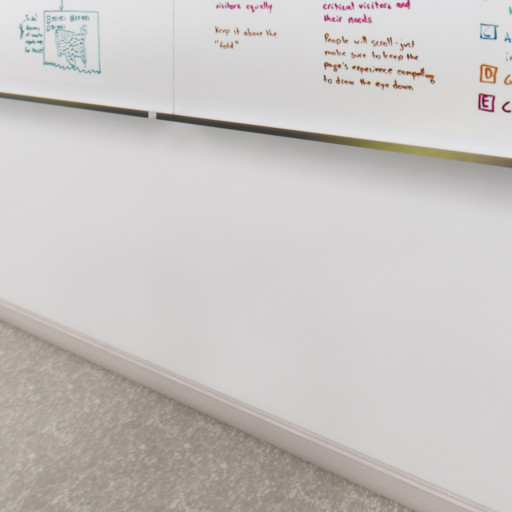 visitors equally
Keep it above the
"fold"
critical visitors and
their needs
People will scroll - just
make sure to keep the
page's experience compelling
to draw the eye down
C A
D
E C